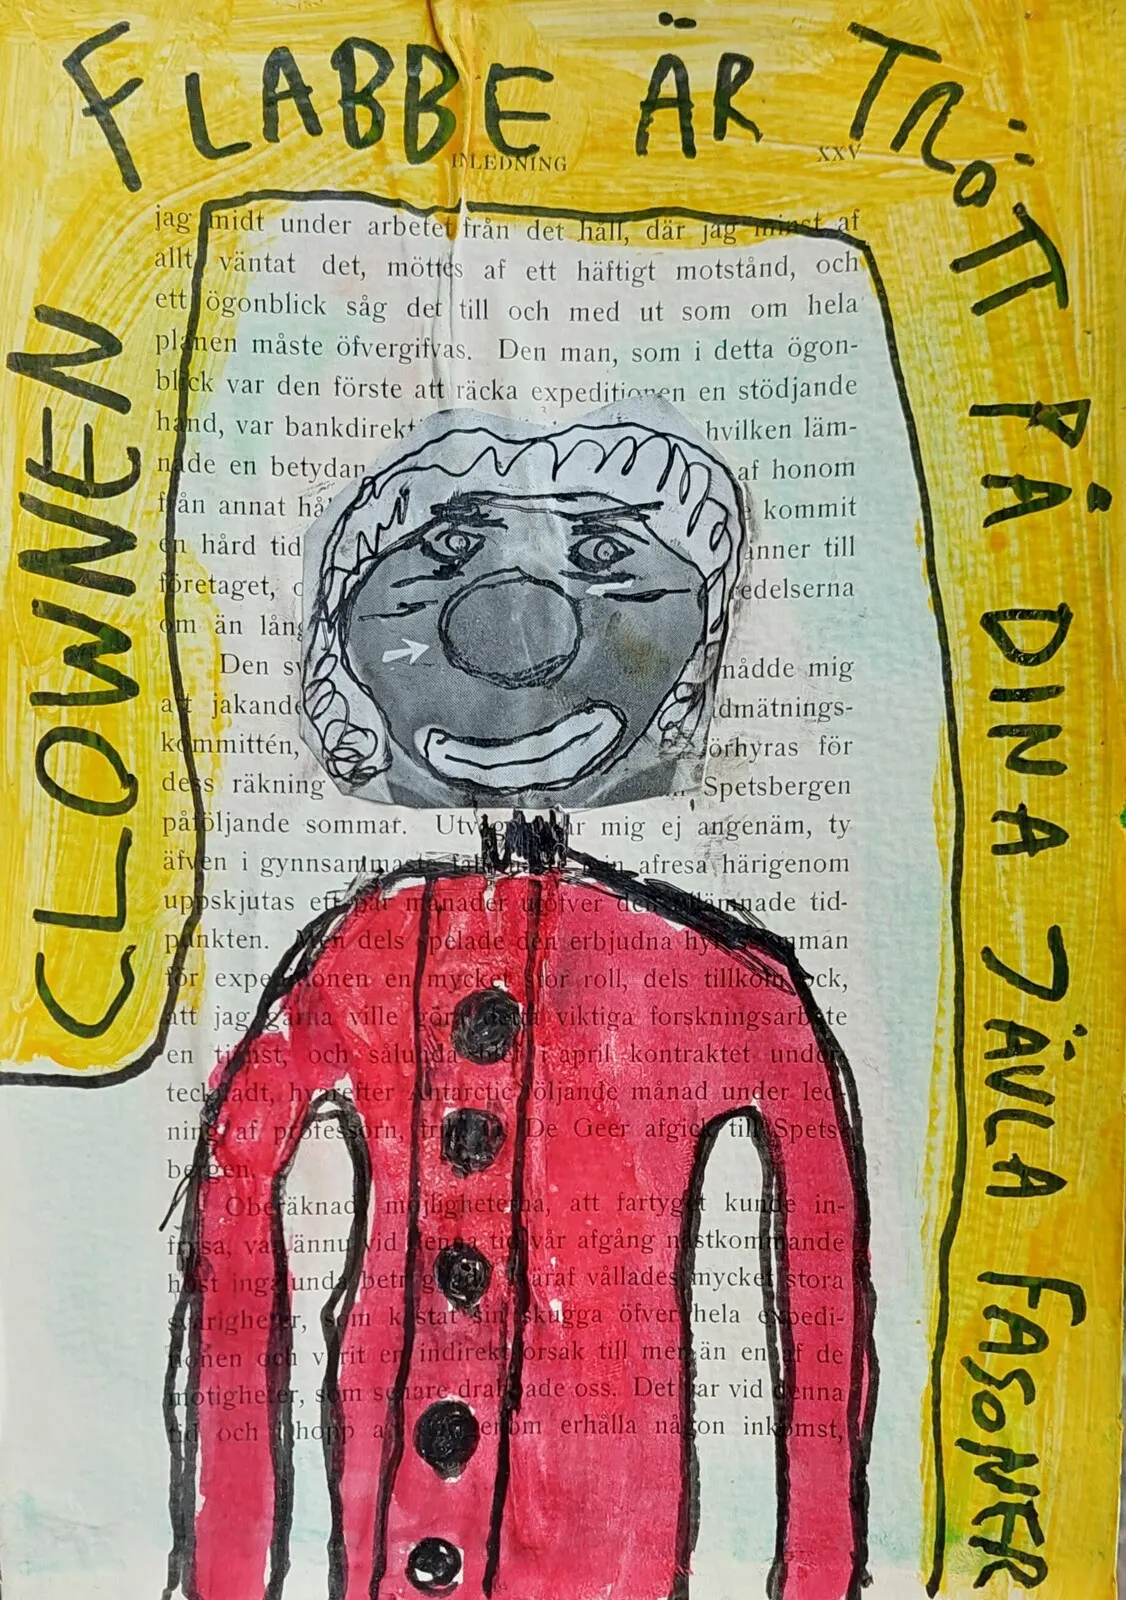 CLOWNEN
FLABBE ÄR TRÖTT PÅ DINA JÄVLA FASONER
INLEDNING XXV
jag midt under arbetet från det håll, där jag minst af
allt väntat det, möttes af ett häftigt motstånd, och
ett ögonblick såg det till och med ut som om hela
planen måste öfvergifvas. Den man, som i detta ögon-
blick var den förste att räcka expeditionen en stödjande
hand, var hvilken läm-
nade en af honom
från annat kommit
en hård tid till
företaget,
om än
Den nådde mig
att
kommittén, förhyras för
dess räkning Spetsbergen
påföljande sommar. mig ej angenäm, ty
äfven i gynnsammaste min afresa härigenom
uppskjutas ett par månader utöfver den tid-
punkten. Men dels spelade den erbjudna
för expeditionen en mycket stor roll, dels tillkom ock,
att jag gärna ville göra detta viktiga forskningsarbete
en tjänst, och sålunda blef i april kontraktet under-
tecknadt, hvarefter Antarctic följande månad under led-
ning af professorn, De Geer afgick till Spets-
bergen.
Oberäknad möjligheterna, att fartyget kunde in-
frysa, var ännu vid denna tid vår afgång nästkommande
höst däraf vållades mycket stora
svårigheter, som kastat sin skugga öfver hela expedi-
tionen och varit en indirekt orsak till mer än en af de
motigheter, som senare drabbade oss. Det var vid denna
tid och i hopp att genom erhålla någon inkomst,